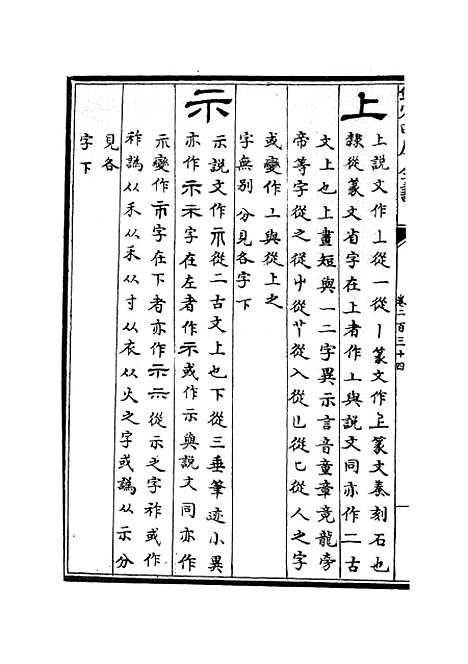 上
上說文作丄從一從丨篆文作𠄞篆文秦刻石也
隸從篆文省字在上者作丄與說文同亦作二古
文上也上畫短與一二字異示言音童章竞龍旁
帝等字從之從屮從艹從入從㔾從匕從人之字
或變作丄與從上之
字無別分見各字下
示
示說文作示從二古文上也下從三垂筆迹小異
亦作示示字在左者作示或作示與說文同亦作
示變作字在下者亦作示從示之字祚或作
祚譌从禾从禾从寸从衣从火之字或譌从示分
見各
字下
卷二百三十四